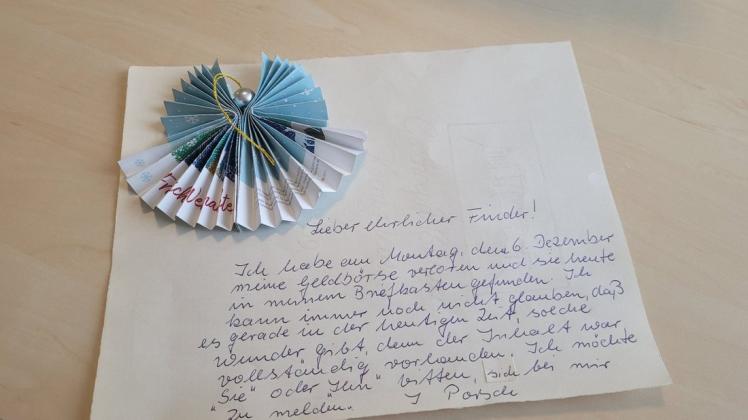 Lieber ehrlicher Finder!
Ich habe am Montag, den 6. Dezember
meine Geldbörse verloren und sie heute
in meinem Briefkasten gefunden. Ich
kann immer noch nicht glauben, daß
es gerade in der heutigen Zeit, solche
Wunder gibt, denn der Inhalt war
vollständig vorhanden. Ich möchte
"Sie" oder "Ihn" bitten, sich bei mir
zu melden". I Porsch